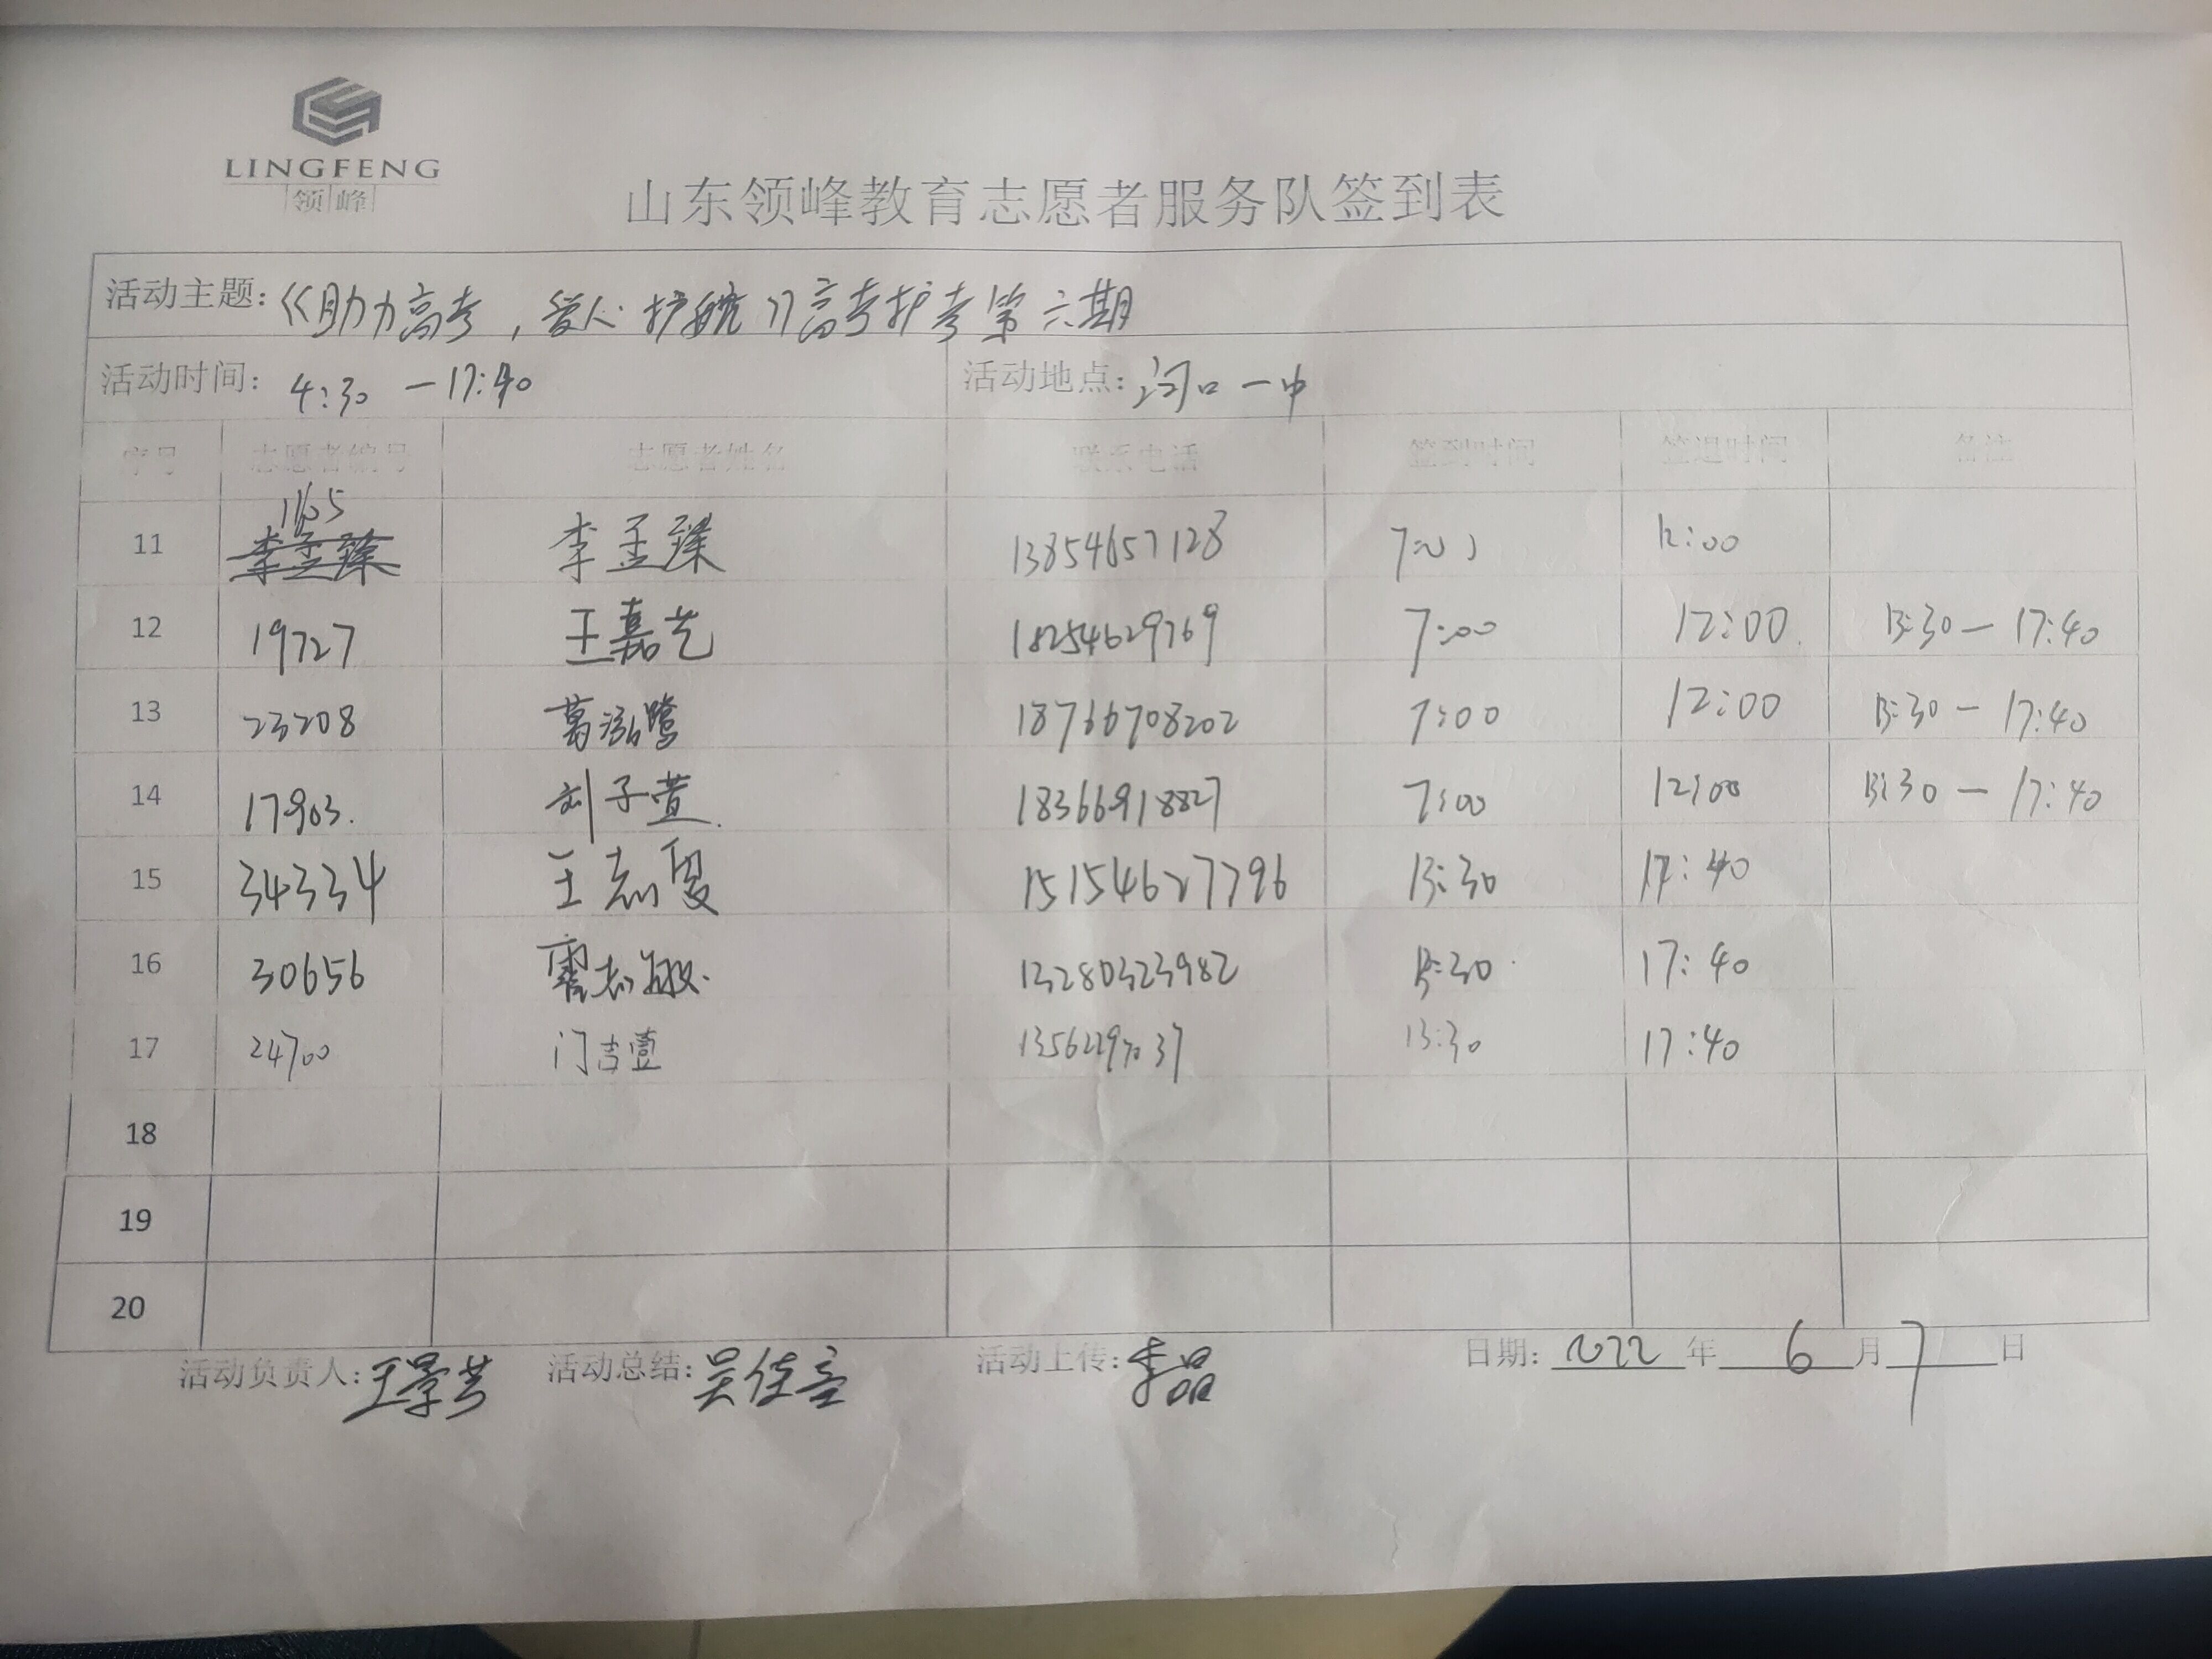 LINGFENG
领峰
山东领峰教育志愿者服务队签到表
活动主题：《助力高考，爱心护航》高考护考第六期
活动时间：4:30 —17:40 活动地点：河口一中
序号 志愿者编号 志愿者姓名 联系电话 签到时间 签退时间 备注
11 李孟臻 13854657128 12:00
12 19727 王嘉艺 18254629769 7:00 12:00 13:30—17:40
13 23208 葛泓鹭 18766708202 7:00 12:00 13:30—17:40
14 17903. 刘子萱. 18366918827 7:00 12:00 13:30—17:40
15 34334 王志 15154627796 13:30 17:40
16 30656 霍志敏. 13280323982 13:30 17:40
17 24700 门吉壹 13562297037 13:30 17:40
18
19
20
活动负责人：王景 活动总结：吴佳 活动上传：李品 日期：2022年6月7日